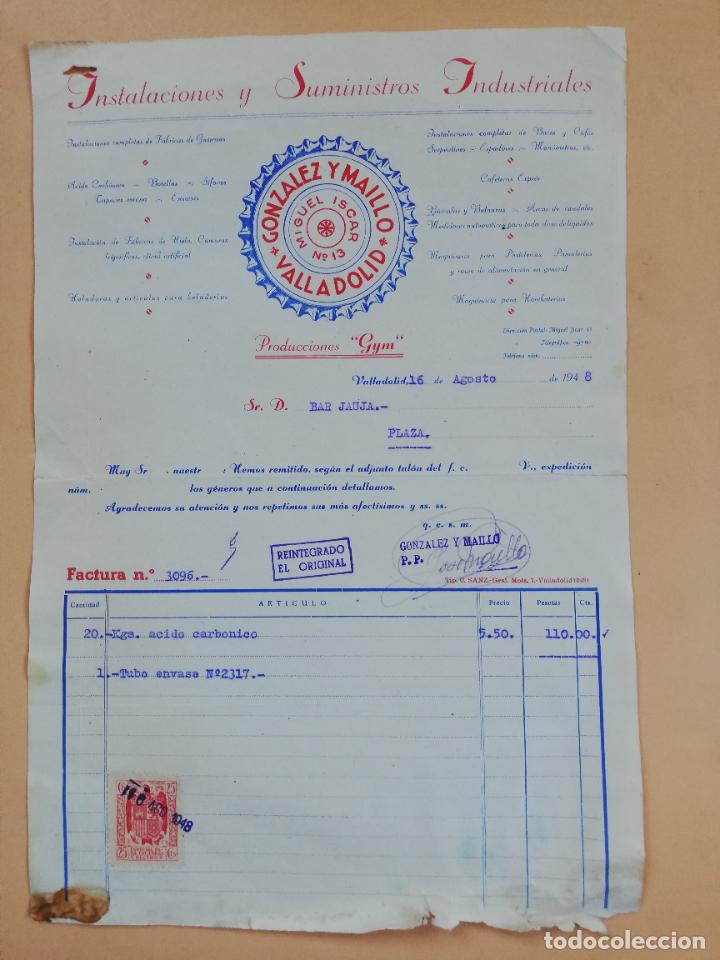 Instalaciones y Suministros Industriales
Instalaciones completas de Fábricas de Gaseosas
Acido Carbónico - Botellas - Sifones
Tapones corona - Envases
Instalación de Fábricas de Hielo, Cámaras
frigoríficas, hielo artificial
Heladoras y artículos para heladerías
GONZALEZ Y MAILLO
MIGUEL ISCAR
Nº 13
VALLADOLID
Instalaciones completas de Bares y Cafés
Serpentines - Espadines - Manómetros, etc.
Cafeteras Exprés
Básculas y Balanzas - Arcas de caudales
Medidores automáticos para toda clase de líquidos
Maquinaria para Pastelerías, Panaderías
y ramo de alimentación en general
Maquinaria para Horchaterías
Dirección Postal: Miguel Iscar 13
Telegráfica: Gym
Teléfono núm.
Producciones "Gym"
Valladolid, 16 de Agosto de 1948
Sr. D. BAR JAUJA.-
PLAZA.
Muy Sr . nuestr : Hemos remitido, según el adjunto talón del f. c. V., expedición
núm. los géneros que a continuación detallamos.
Agradecemos su atención y nos repetimos sus más afectísimos y ss. ss.
q. e. s. m.
REINTEGRADO
EL ORIGINAL
GONZALEZ Y MAILLO
P. P.
Factura n.º 3096.-
Tip. C. SANZ.-Gral. Mola, 7.-Valladolid
Cantidad ARTICULO Precio Pesetas Cts.
20.-Kgs. acido carbonico 5.50. 110.00.
1.-Tubo envase Nº2317.-
25
16 AGO 1948
25 Cts
todocoleccion
todocoleccion.net